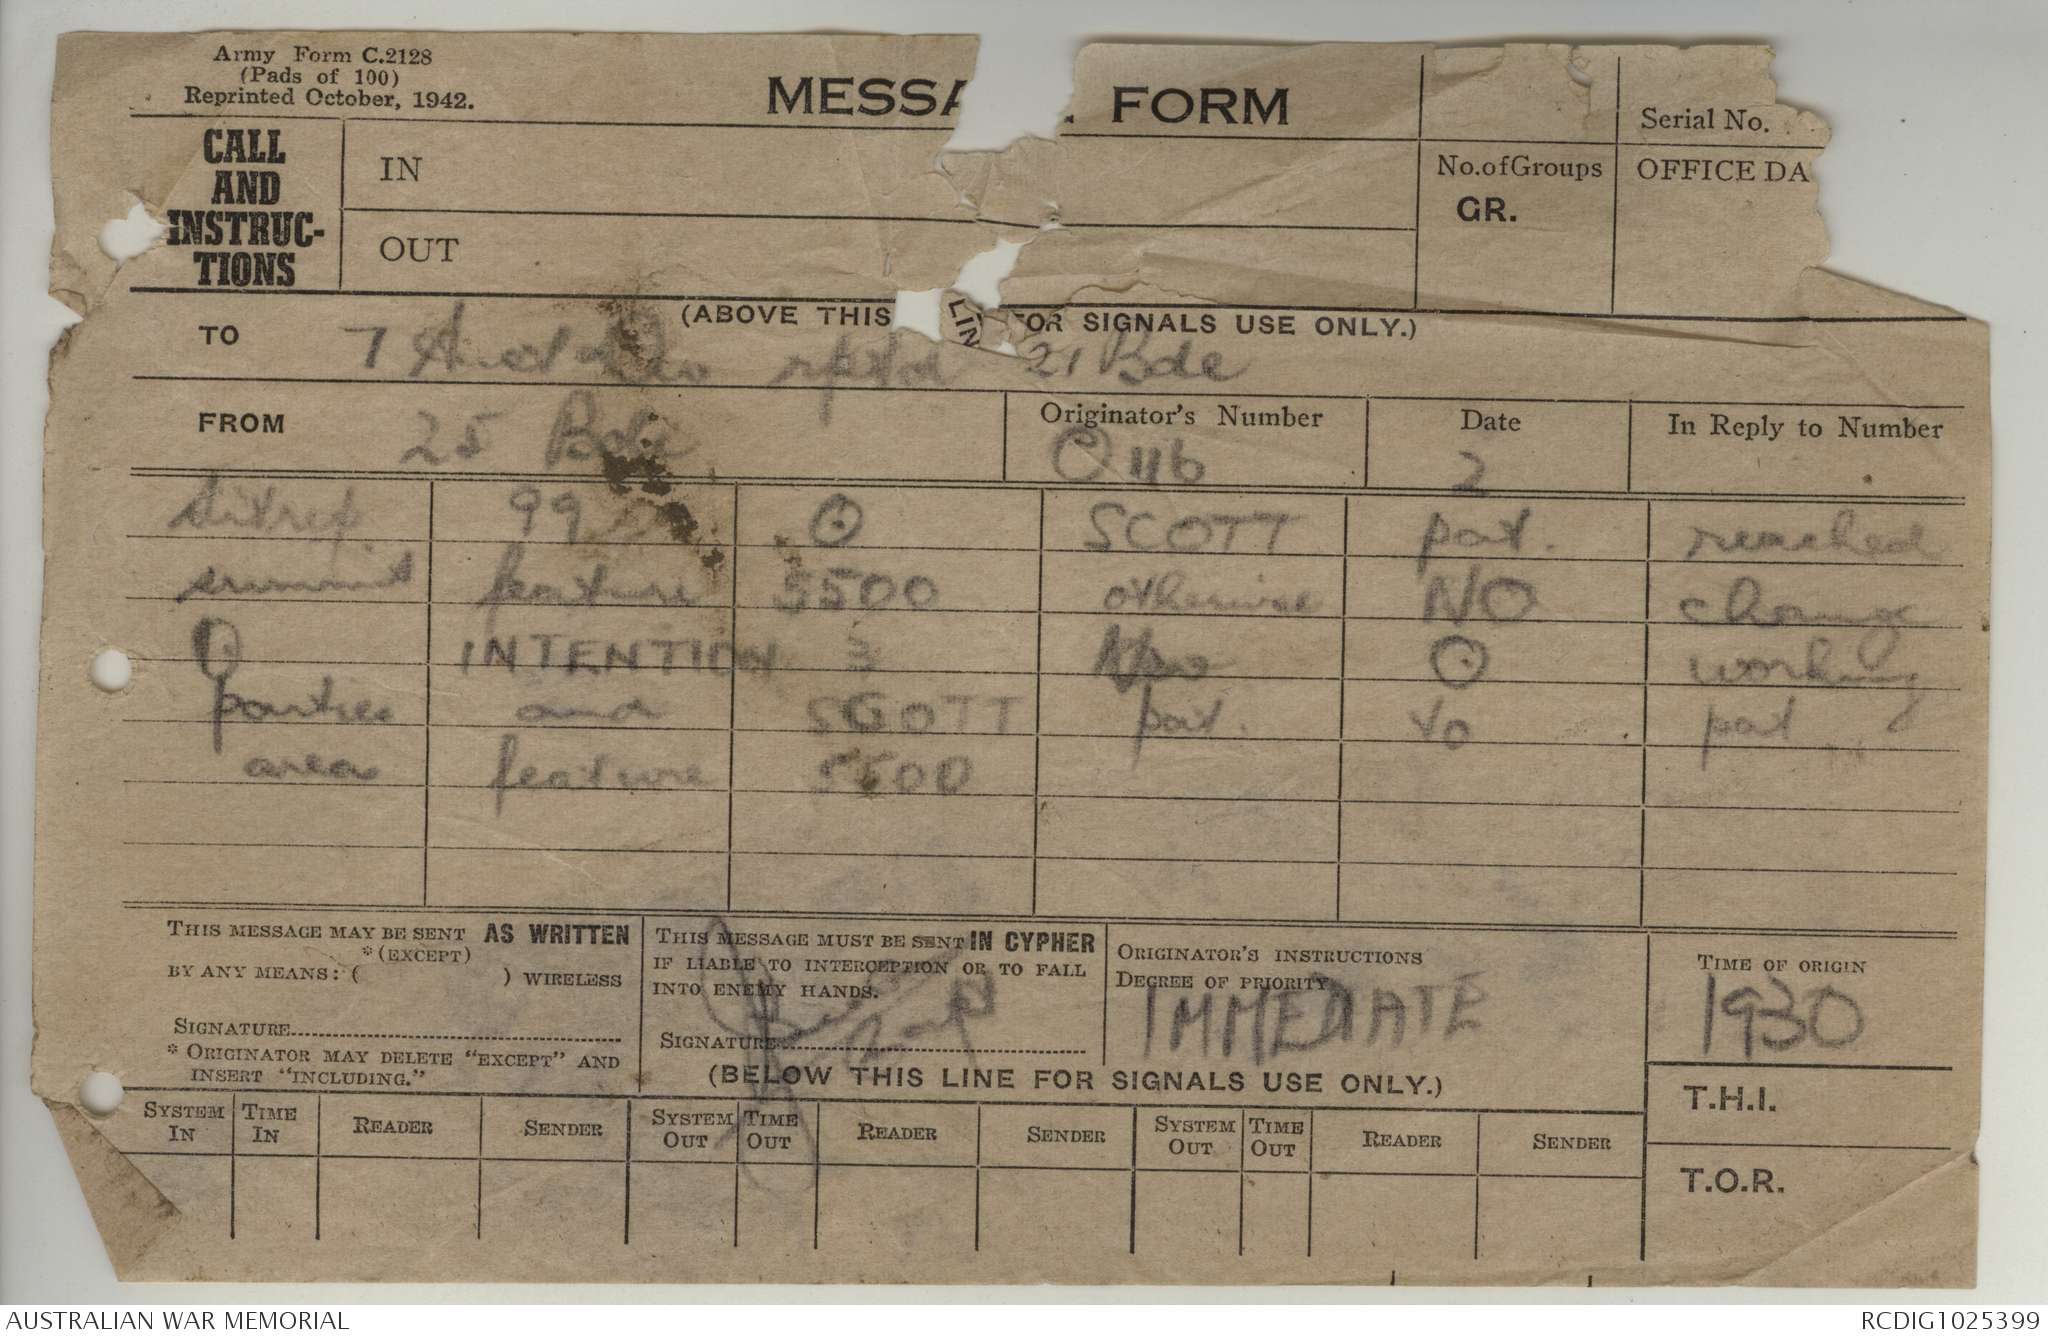 Army Form C.2128
(Pads of 100)
Reprinted October, 1942.
MESSA FORM
Serial No.
CALL AND INSTRUC-TIONS
IN
OUT
No. of Groups
GR.
OFFICE DA
(ABOVE THIS LIN FOR SIGNALS USE ONLY.)
TO 7 Aust Div rptd 21 Bde
FROM 25 Bde
Originator's Number O 116
Date 2
In Reply to Number
sitrep 99 ⊙ SCOTT pat. reached
summit feature 5500 otherwise NO change
INTENTION ⊙ working
parties and SCOTT pat. to pat
area feature 5500
THIS MESSAGE MAY BE SENT AS WRITTEN
*(EXCEPT)
BY ANY MEANS: ( ) WIRELESS
SIGNATURE
* ORIGINATOR MAY DELETE "EXCEPT" AND
INSERT "INCLUDING."
THIS MESSAGE MUST BE SENT IN CYPHER
IF LIABLE TO INTERCEPTION OR TO FALL
INTO ENEMY HANDS.
SIGNATURE
ORIGINATOR'S INSTRUCTIONS
DEGREE OF PRIORITY
IMMEDIATE
TIME OF ORIGIN
1930
(BELOW THIS LINE FOR SIGNALS USE ONLY.)
T.H.I.
T.O.R.
SYSTEM IN TIME IN READER SENDER SYSTEM OUT TIME OUT READER SENDER SYSTEM OUT TIME OUT READER SENDER
AUSTRALIAN WAR MEMORIAL
RCDIG1025399